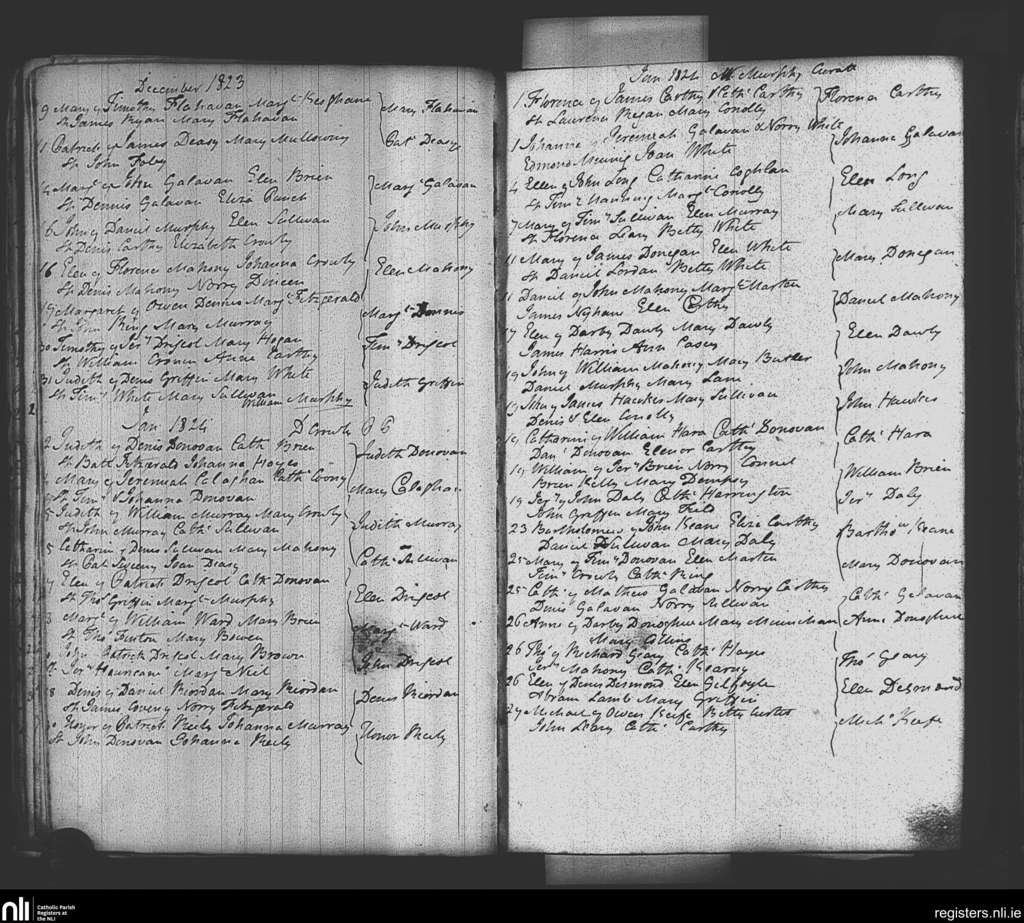 December 1823
9 Mary of Timothy Flahavan Margt Keephane } Mary Flahavan
Sp James Ryan Mary Flahavan
Patrick of James Deasy Mary Pat Deasy
Sp John Foley
4 Margt of John Galavan Elen Brien } Margt Galavan
Sp Dennis Galavan Eliza Punch
6 John of Daniel Murphy Elen Sullivan } John Murphy
Sp Denis Carthy Elizabeth Crowly
16 Elen of Florence Mahony Johanna Crowly } Elen Mahony
Sp Denis Mahony Norry Dineen
19 Margaret of Owen Dennis Margt Fitzgerald } Margt Dennis
Sp John King Mary Murray
Timothy of Jery Driscol Mary Hogan } Timy Driscol
Sp William Cronen Anne Carthy
31 Judith of Denis Griffin Mary White } Judith Griffin
Sp Timy White Mary Sullivan
William Murphy
Jan 1824 D Crowly P P
2 Judith of Denis Donovan Cath Brien } Judith Donovan
Sp Batt Fitzgerald Johanna Hayes
Mary of Jeremiah Calaghan Cath Coony } Mary Calaghan
Sp Timy & Johanna Donovan
5 Judith of William Murray Mary Crowly } Judith Murray
Sp John Murray Cath Sullivan
5 Catharin of Denis Sullivan Mary Mahony } Cath Sullivan
Sp Pat Sweeny Joan Deasy
7 Elen of Patrick Driscol Cath Donovan } Elen Driscol
Sp Thos Griffin Margt Murphy
Margt of William Ward Mary Brien } Margt Ward
Sp Thos Fenton Mary Bowen
John Patrick Driscol Mary Brown } John Driscol
Sp Jery Houricane Margt Neil
18 Denis of Daniel Riordan Mary Riordan } Denis Riordan
Sp James Coveny Norry Fitzgerald
Honor of Patrick Keely Johanna Murray } Honor Keely
Sp John Donovan Johanna Keely
Jan 1824 M Murphy Curate
1 Florence of James Carthy & Cath Carthy } Florence Carthy
Sp Laurence Regan Mary Conolly
1 Johanna of Jeremiah Galavan & Norry White } Johanna Galavan
Edmond Joan White
4 Ellen of John Long Catharine Coghlan } Elen Long
Sp Timy Manning Margt Conolly
7 Mary of Timy Sullivan Elen Murray } Mary Sullivan
Sp Florence Leary Betty White
11 Mary of James Donegan Elen White } Mary Donegan
Sp Daniel Lordan Betty White
11 Daniel of John Mahony Margt Marten } Daniel Mahony
James Nyhane Elen Carthy
17 Elen of Darby Dawly Mary Dawly } Elen Dawly
James Harris Ann Casey
19 John of William Mahony Mary Butler } John Mahony
Daniel Murphy Mary Lane
19 John of James Hawkes Mary Sullivan } John Hawkes
Denis & Elen Conolly
19 Catharine of William Hara Cath Donovan } Cath Hara
Danl Donovan Elenor Carthy
19 William of Jery Brien Norry Connel } William Brien
Brien Kelly Mary Dempsy
19 Jery of John Daly Cath Harrington } Jery Daly
John Griffin Mary Field
23 Bartholomew of John Keane Eliza Carthy } Barthow Keane
Daniel Sullivan Mary Daly
25 Mary of Timy Donovan Elen Marten } Mary Donovan
Timy Crowly Cath King
25 Cath of Mathew Galavan Norry Carthy } Cath Galavan
Denis Galavan Norry Sullivan
26 Anne of Darby Donoghue Mary } Anne Donoghue
Mary Collins
26 Thos of Richard Geary Cath Hayes } Thos Geary
Jery Mahony Cath Kearny
26 Elen of Denis Desmond Elen Gilfoyle } Elen Desmond
Abram Lamb Mary Griffin
29 Michael of Owen Keefe Betty } Michl Keefe
John Leary Cath Carthy
nli
Catholic Parish
Registers at
the NLI
registers.nli.ie